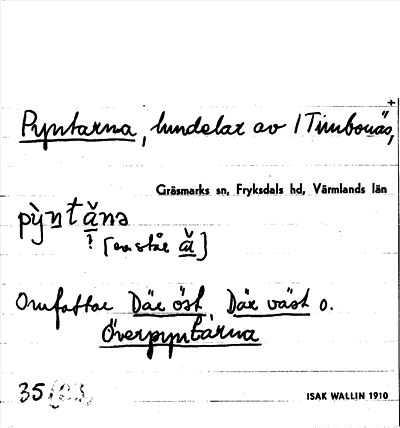 Pyntarna, lundelar av 1 Timbonäs,
Gräsmarks sn, Fryksdals hd, Värmlands län
pỳn̲tǎ̲nə
? [ova står ǎ̲]
Omfattar Där öst, Där väst o.
Överpyntarna
35
ISAK WALLIN 1910